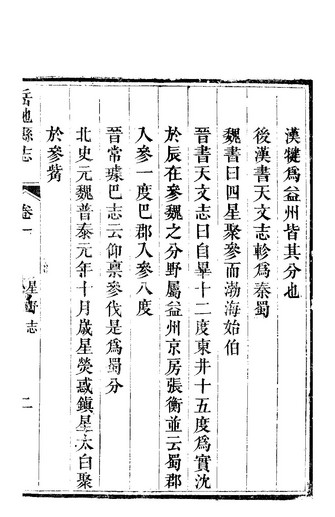 漢犍為益州皆其分也
後漢書天文志軫為秦蜀
魏書曰四星聚參而渤海始伯
晉書天文志曰自畢十二度東井十五度為實沈
於辰在參魏之分野屬益州京房張衡並云蜀郡
入參一度巴郡入參八度
晉常璩巴志云仰禀參伐是為蜀分
北史元魏普泰元年十月歲星熒惑鎮星太白聚
於參觜
岳池縣志
卷一
星野志
二